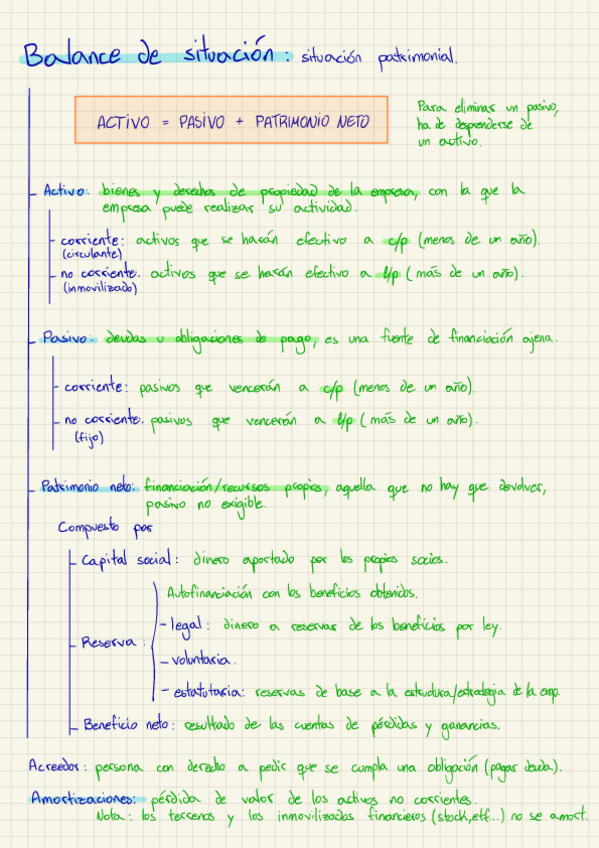 Balance de situación: situación patrimonial.
ACTIVO = PASIVO + PATRIMONIO NETO
Para eliminar un pasivo,
ha de desprenderse de
un activo.
Activo: bienes y derechos de propiedad de la empresa, con la que la
empresa puede realizar su actividad.
corriente: activos que se harán efectivo a c/p (menos de un año).
(circulante)
no corriente: activos que se harán efectivo a l/p (más de un año).
(inmovilizado)
Pasivo: deudas u obligaciones de pago, es una fuente de financiación ajena.
corriente: pasivos que vencerán a c/p (menos de un año).
no corriente: pasivos que vencerán a l/p (más de un año).
(fijo)
Patrimonio neto: financiación/recursos propios, aquella que no hay que devolver,
pasivo no exigible.
Compuesto por
Capital social: dinero aportado por los propios socios.
Autofinanciación con los beneficios obtenidos.
- legal: dinero a reservas de los beneficios por ley.
Reserva:
- voluntaria.
- estatutaria: reservas de base a la estructura/estrategia de la emp.
Beneficio neto: resultado de las cuentas de pérdidas y ganancias.
Acreedor: persona con derecho a pedir que se cumpla una obligación (pagar deuda).
Amortizaciones: pérdida de valor de los activos no corrientes.
Nota: los terrenos y los inmovilizados financieros (stock, etf...) no se amort.